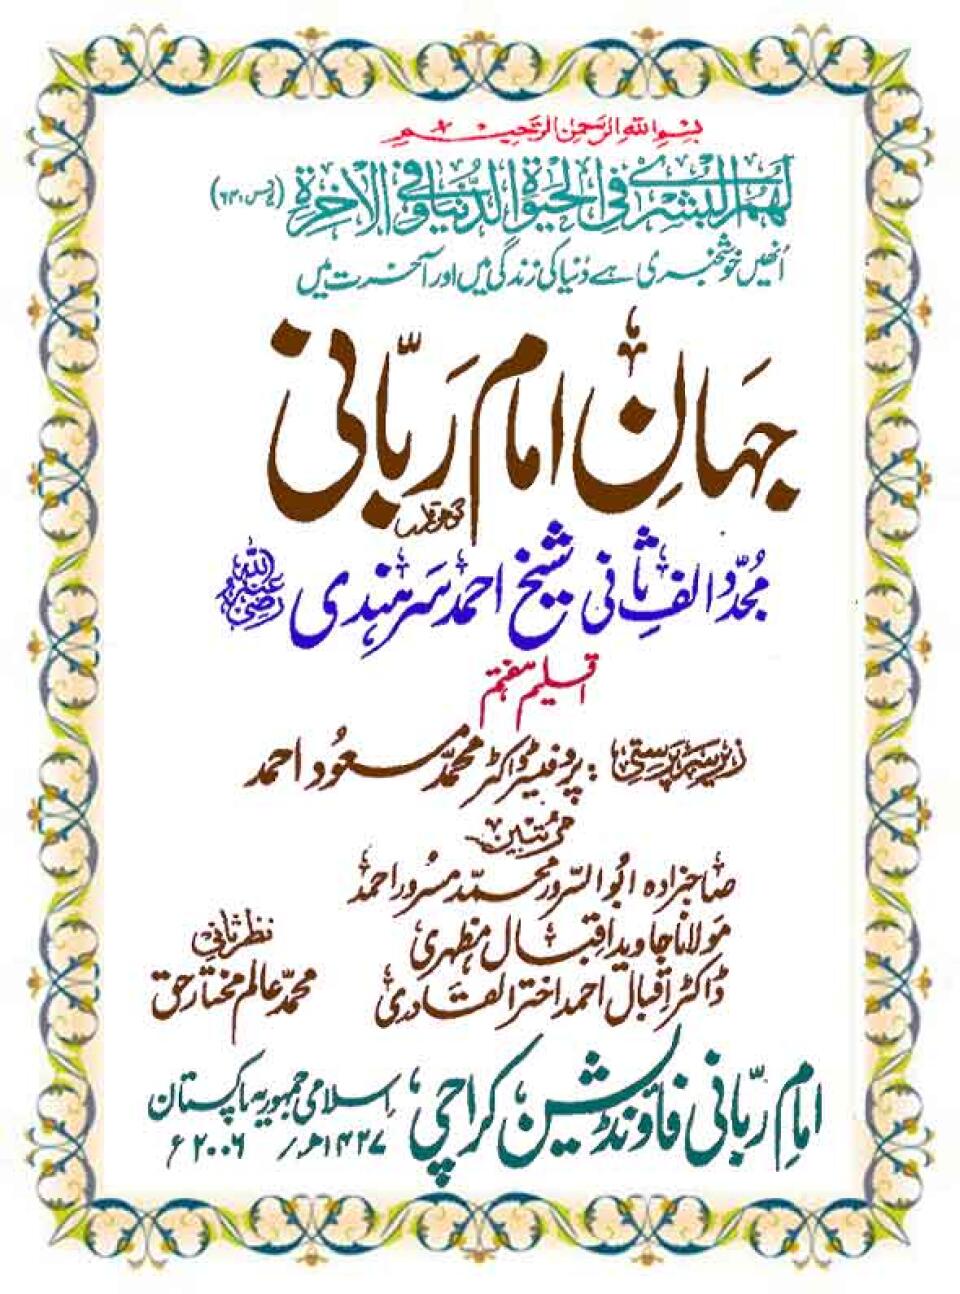 بسم الله الرحمن الرحيم
لَهُمُ الْبُشْرٰى فِي الْحَيٰوةِ الدُّنْيَا وَفِي الْاٰخِرَةِ (یونس، ۶۴)
اُنھیں خوشخبری ہے دُنیا کی زندگی میں اور آخرت میں
جہانِ امام رَبّانی
مُجدّد الفِ ثانی شیخ احمد سَرہندی رضی اللہ عنہ
اقلیم ہفتم
زیر سرپرستی : پروفیسر ڈاکٹر محمّد مسعُود احمد
مُرتّبین
صاحبزادہ ابُو السّرور محمّد مسرُور احمد
مولانا جاوید اقبال مظہری
ڈاکٹر اقبال احمد اختر القادری
نظر ثانی
محمّد عالم مختارِ حق
امامِ ربّانی فاؤنڈیشن، کراچی،
اِسلامی جمہوریہ پاکستان
۱۴۲۷ھ / ۲۰۰۶ء